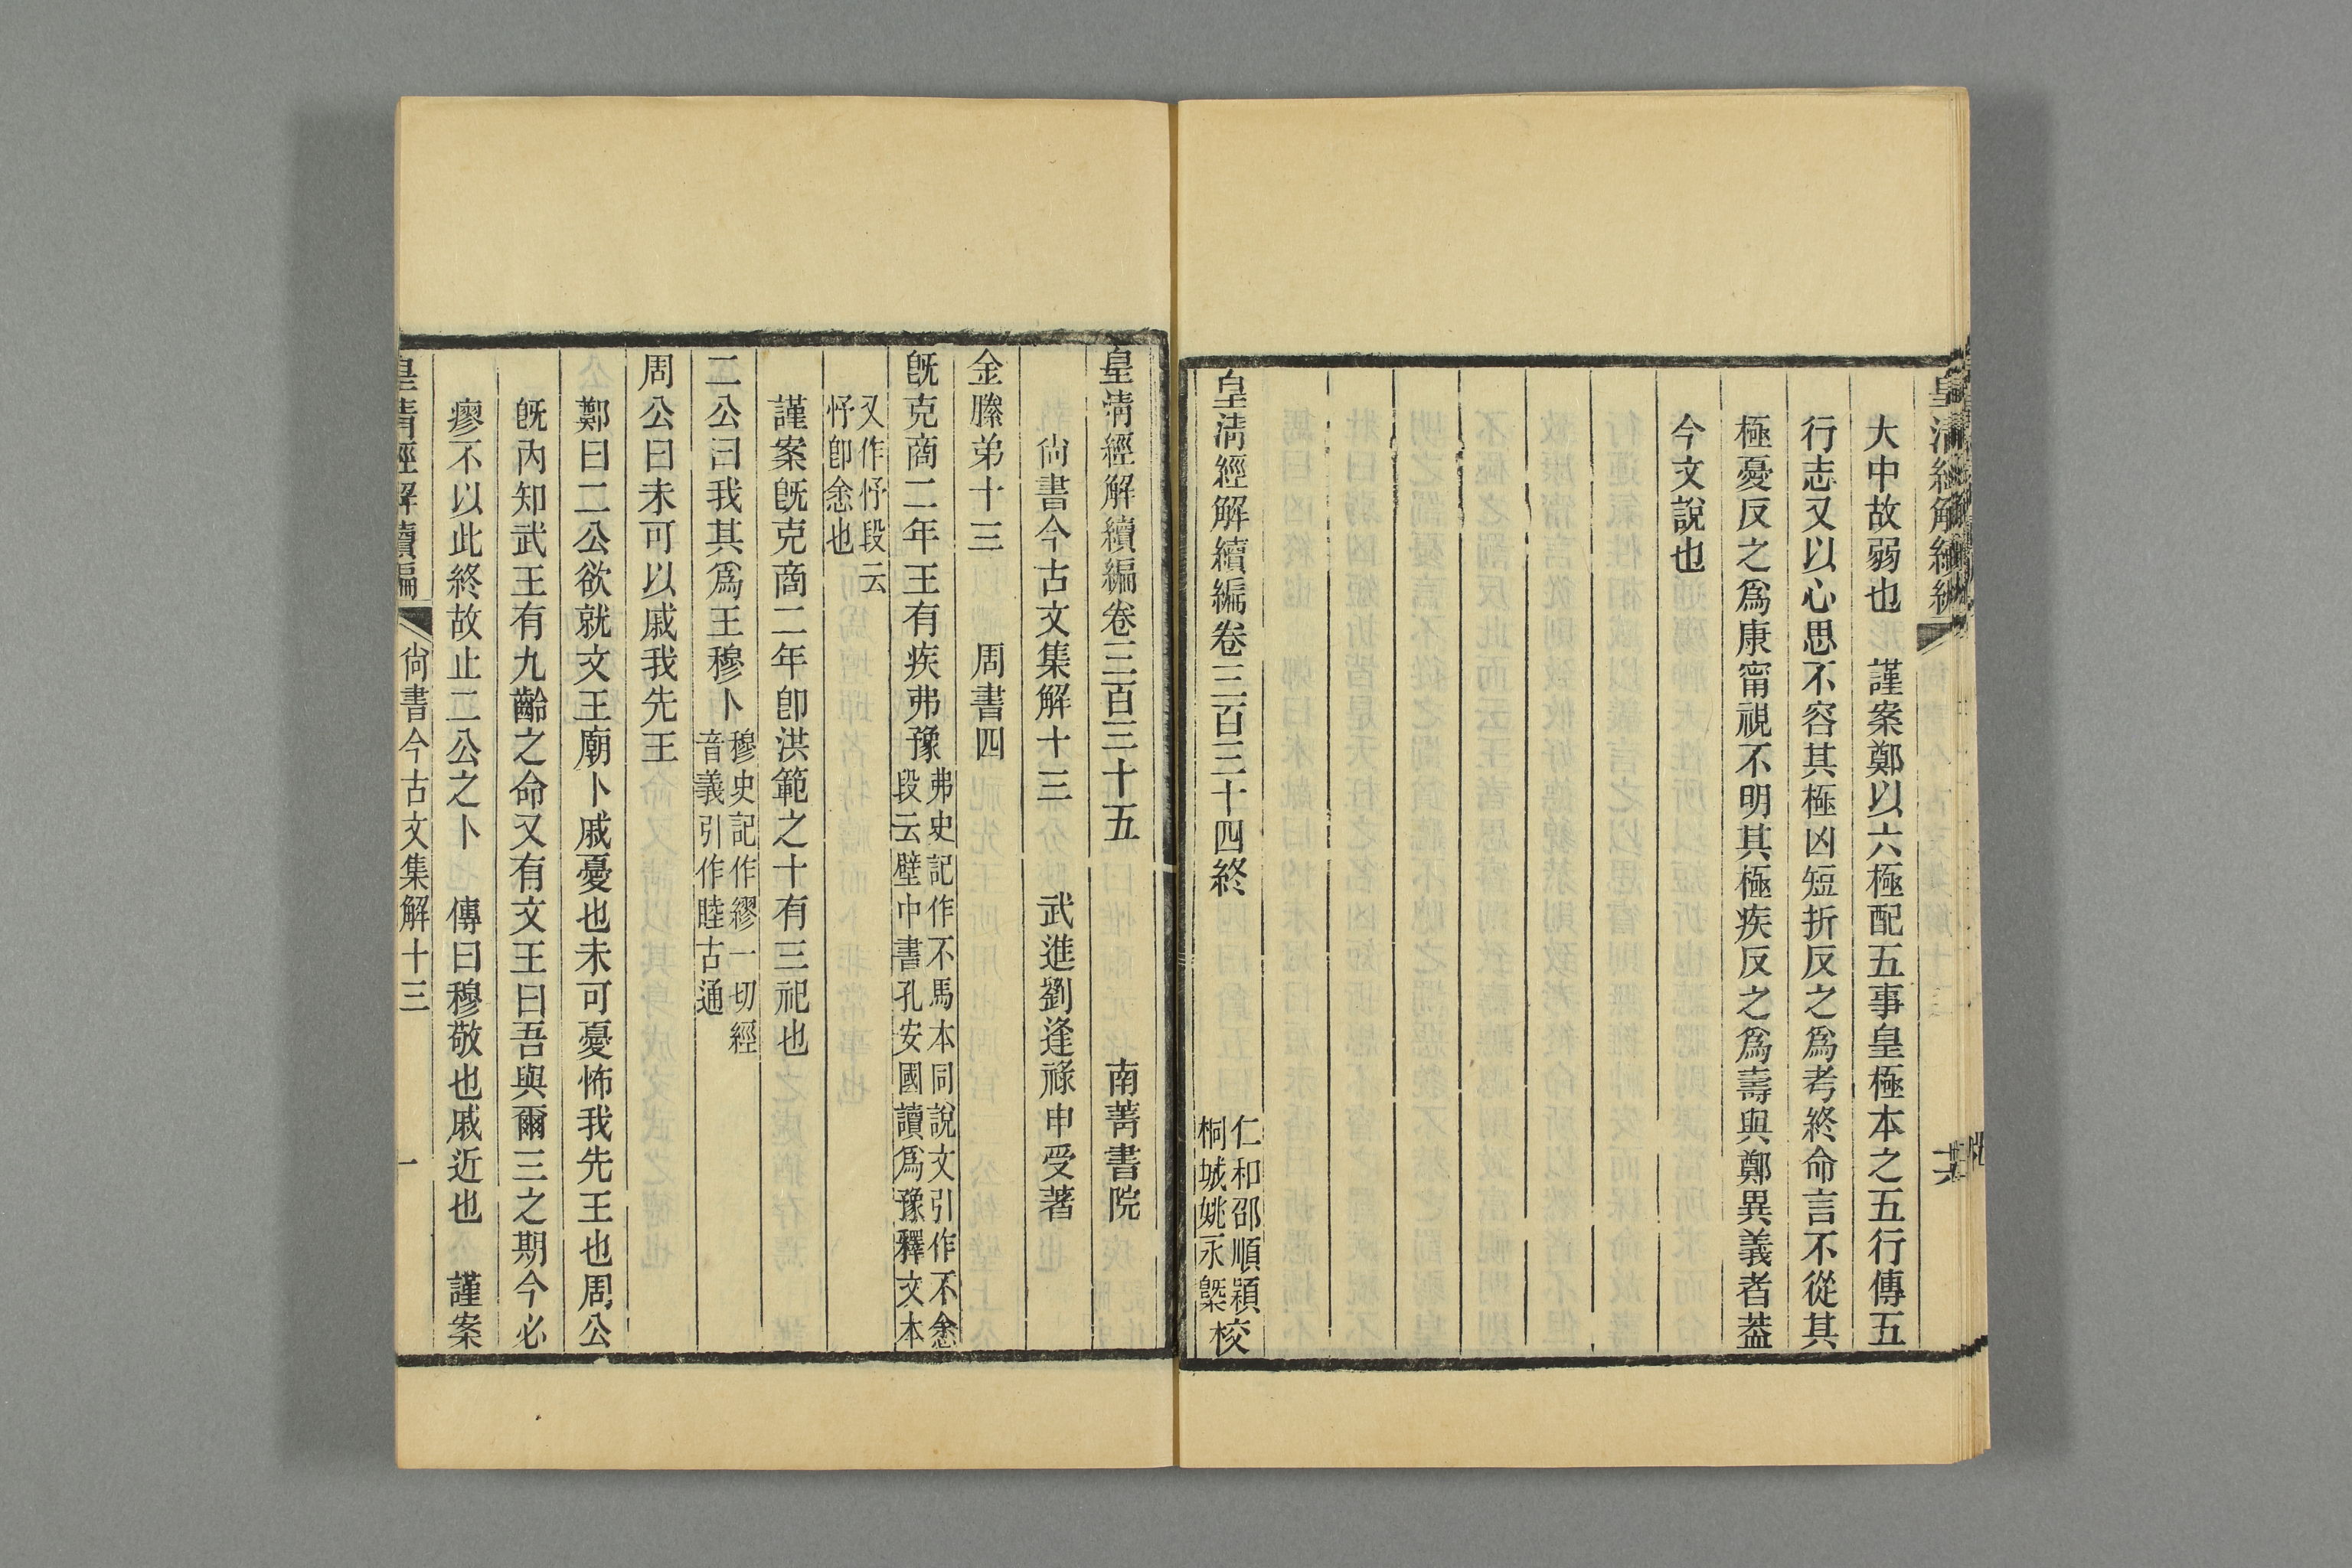 大中故弱也　謹案鄭以六極配五事皇極本之五行傳五
行志又以心思不容其極凶短折反之爲考終命言不從其
極憂反之爲康甯視不明其極疾反之爲壽與鄭異義者葢
今文說也
皇清經解續編卷三百三十四終
仁和邵順穎
桐城姚永㮣校
皇清經解續編卷三百三十五　南菁書院
尙書今古文集解十三　武進劉逢祿申受著
金縢弟十三　周書四
旣克商二年王有疾弗豫弗史記作不馬本同說文引作不悆
段云壁中書孔安國讀爲豫釋文本
又作忬段云
忬卽悆也
謹案旣克商二年卽洪範之十有三祀也
二公曰我其爲王穆卜穆史記作繆一切經
音義引作睦古通
周公曰未可以戚我先王
鄭曰二公欲就文王廟卜戚憂也未可憂怖我先王也周公
旣內知武王有九齡之命又有文王曰吾與爾三之期今必
瘳不以此終故止二公之卜　傳曰穆敬也戚近也　謹案
皇清經解續編　尙書今古文集解十三　一